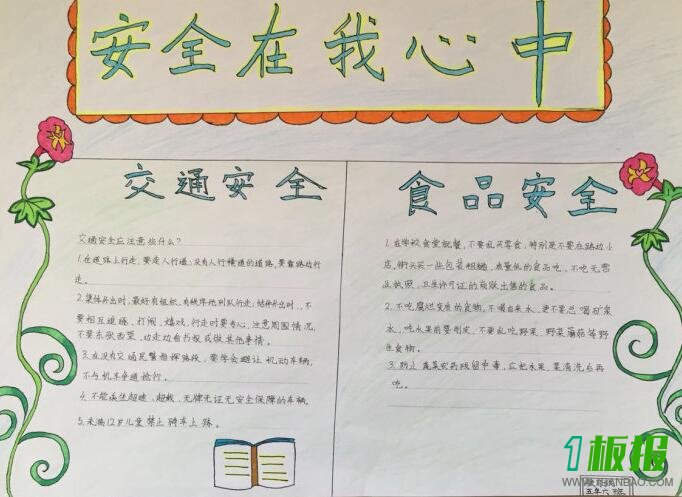 安全在我心中
交通安全
交通安全应注意些什么?
1.在道路上行走,要走人行道;没有人行横道的道路,要靠路边行
走。
2.集体外出时,最好有组织、有秩序地列队行走;结伴外出时、不
要相互追逐、打闹、嬉戏;行走时要专心,注意周围情况,
不要东张西望、边走边看书报或做其他事情。
3.在没有交通民警指挥路段,要学会避让机动车辆,
不与机车争道抢行。
4.不能乘坐超速、超载、无牌无证无安全保障的车辆。
5.未满12岁儿童禁止骑车上路。
食品安全
1.在学校食堂就餐,不要乱买零食;特别是不要在路边小
店、街头买一些包装粗糙、质量低的食品吃、不吃无营
业执照、卫生许可证的商贩出售的食品。
2.不吃腐烂变质的食物,不喝自来水,更不要忽喝矿泉
水,吃水果前要削皮,不要乱吃野菜、野菜蘑菇等野
生食物。
3.防止蔬菜农药残留中毒,应把水果、菜清洗后再
吃。
五年六班
1板报
WWW.1BANBAO.COM